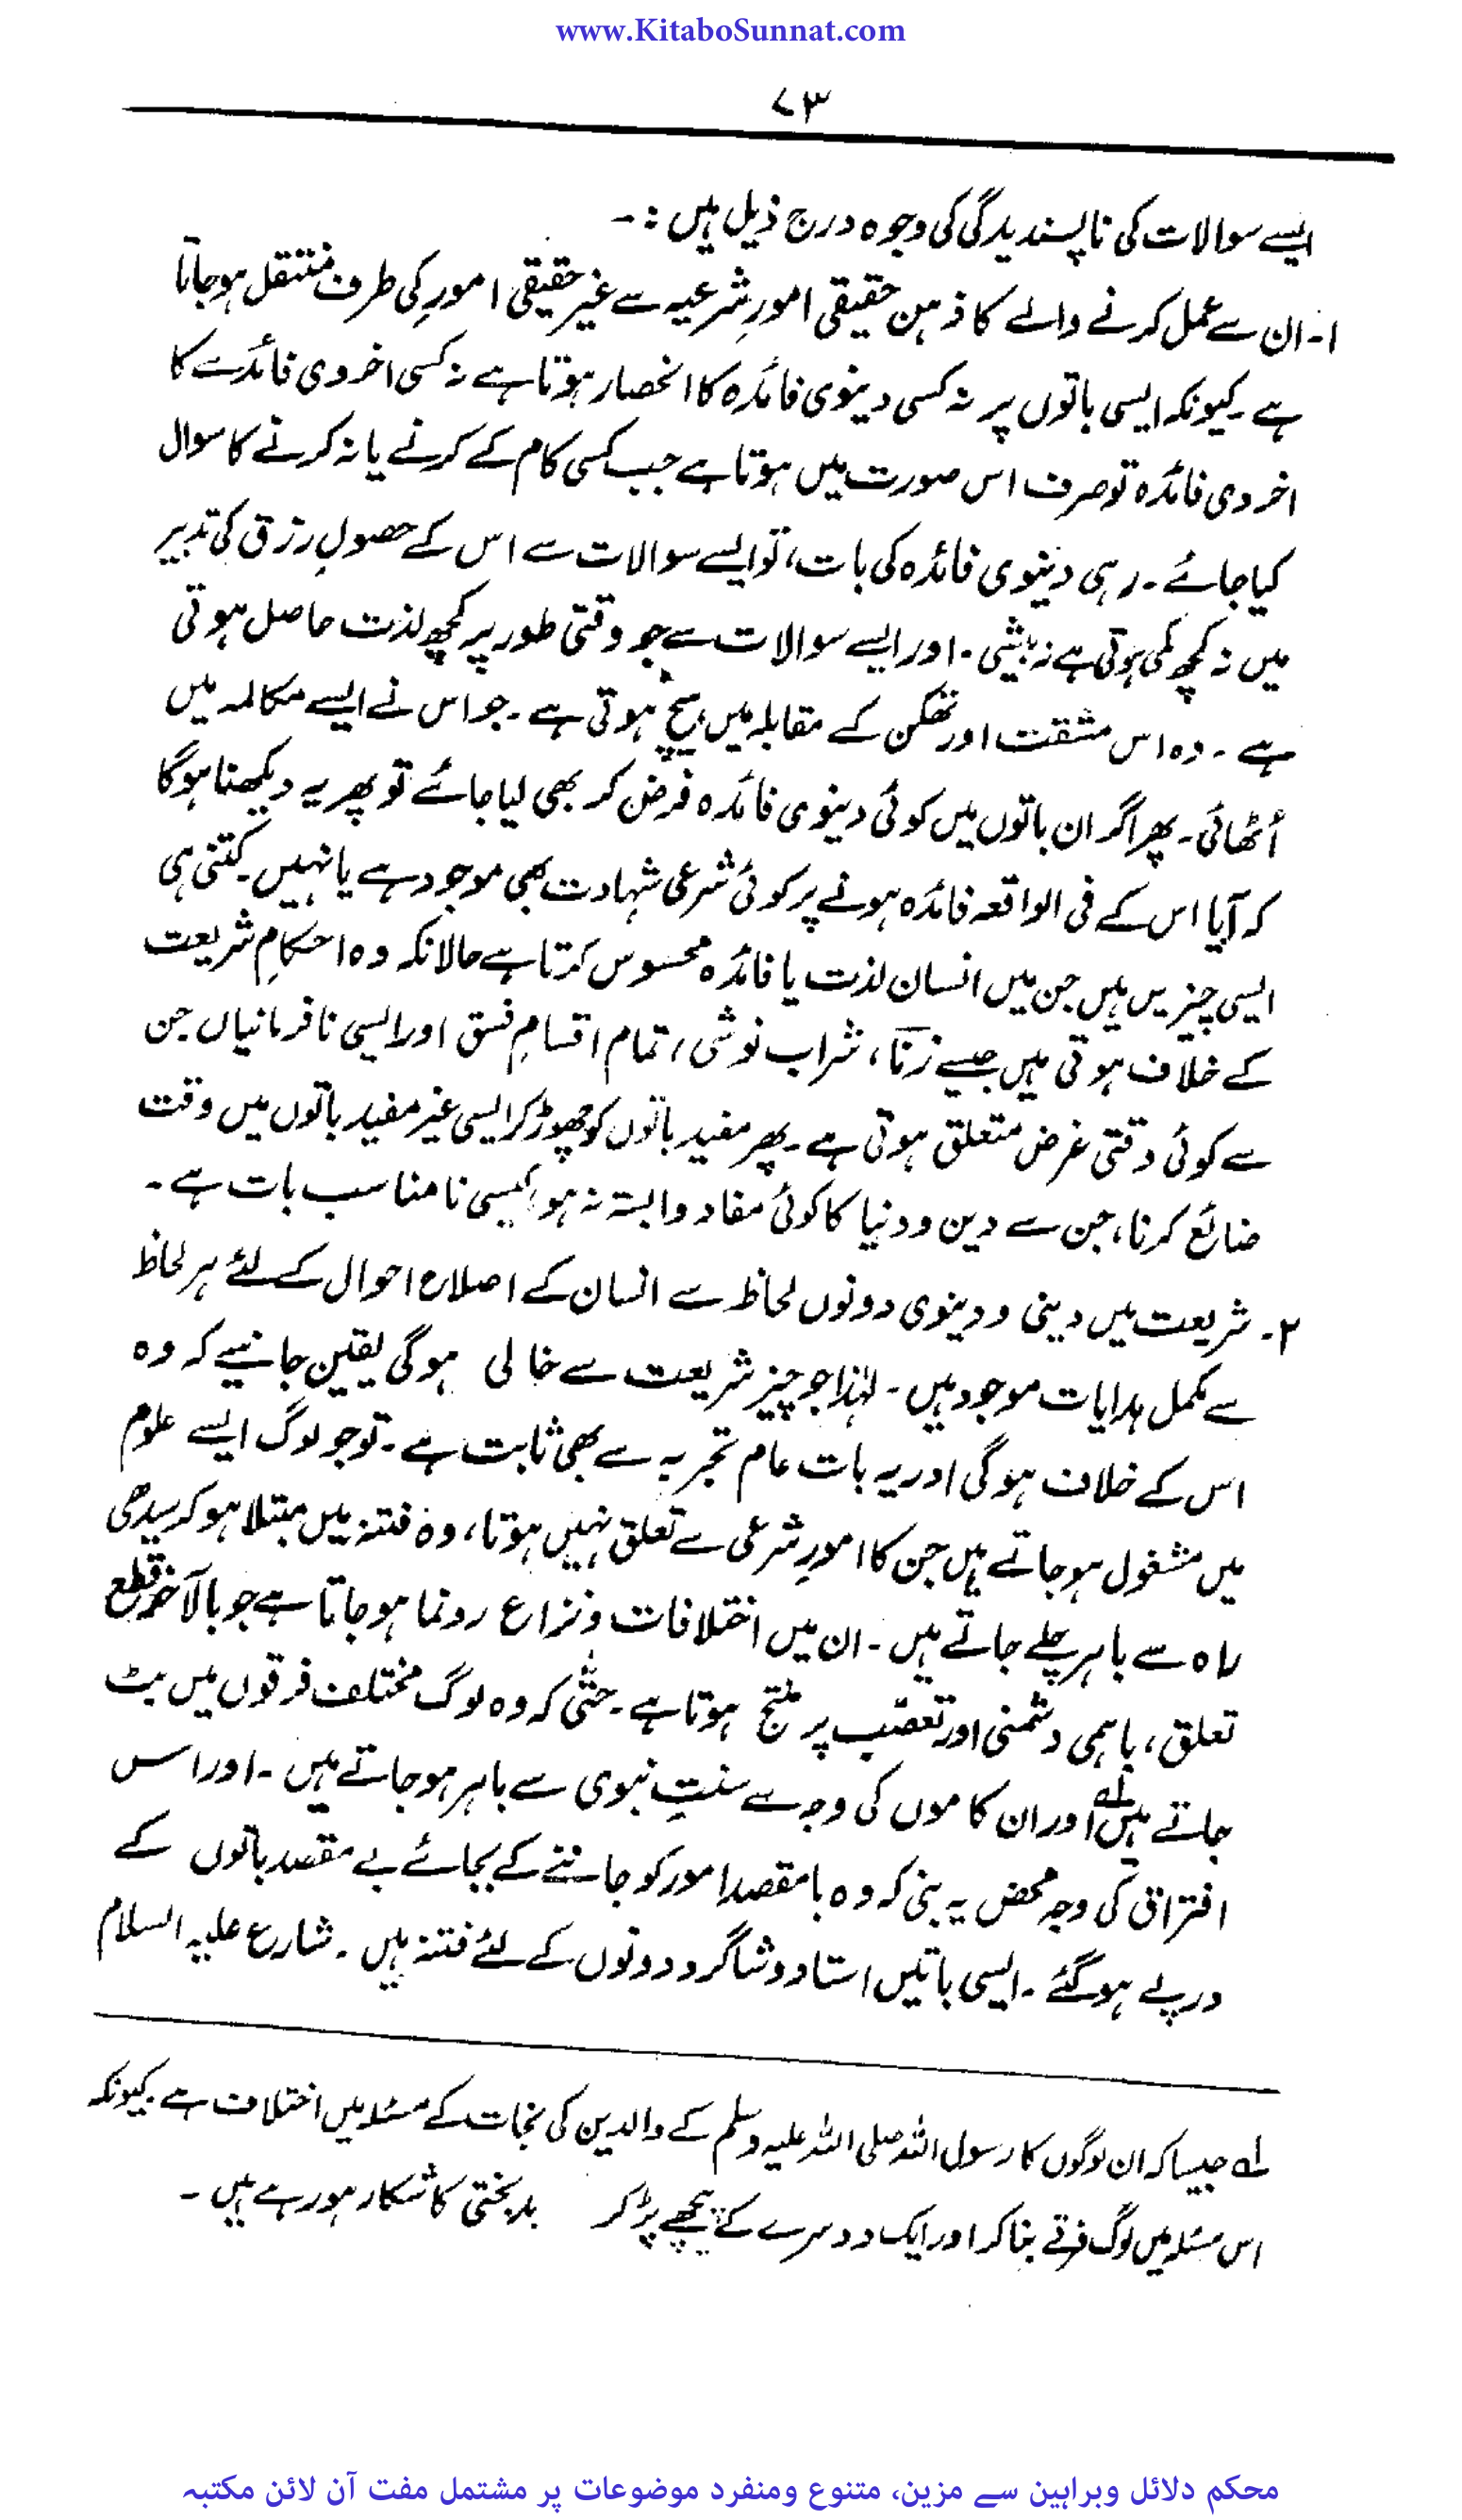 www.KitaboSunnat.com
۷۳
ایسے سوالات کی ناپسندیدگی کی وجوہ درج ذیل ہیں :۔
۱۔ ان سے عمل کرنے والے کا ذہن حقیقی امورِ شرعیہ سے غیر حقیقی امور کی طرف منتقل ہو جاتا
ہے۔ کیونکہ ایسی باتوں پر نہ کسی دینوی فائدہ کا انحصار ہوتا ہے نہ کسی اخروی فائدے کا
اخروی فائدہ تو صرف اس صورت میں ہوتا ہے جب کسی کام کے کرنے یا نہ کرنے کا سوال
کیا جائے۔ رہی دینوی فائدہ کی بات، تو ایسے سوالات سے اس کے حصولِ رزق کی تدبیر
میں نہ کچھ کمی ہوتی ہے نہ بیشی۔ اور ایسے سوالات سے جو وقتی طور پر کچھ لذت حاصل ہوتی
ہے۔ وہ اس مشقت اور تھکن کے مقابلہ میں ہیچ ہوتی ہے۔ جو اس نے ایسے مکالمہ میں
اُٹھائی۔ پھر اگر ان باتوں میں کوئی دینوی فائدہ فرض کر بھی لیا جائے تو پھر یہ دیکھنا ہوگا
کہ آیا اس کے فی الواقعہ فائدہ ہونے پر کوئی شرعی شہادت بھی موجود ہے یا نہیں۔ کتنی ہی
ایسی چیزیں ہیں جن میں انسان لذت یا فائدہ محسوس کرتا ہے حالانکہ وہ احکامِ شریعت
کے خلاف ہوتی ہیں جیسے زنا، شراب نوشی، تمام اقسامِ فسق اور ایسی نافرمانیاں جن
سے کوئی وقتی غرض متعلق ہوتی ہے۔ پھر مفید باتوں کو چھوڑ کر ایسی غیر مفید باتوں میں وقت
ضائع کرنا، جن سے دین و دنیا کا کوئی مفاد وابستہ نہ ہو، کیسی نامناسب بات ہے۔
۲۔ شریعت میں دینی و دینوی دونوں لحاظ سے انسان کے اصلاح احوال کے لئے ہر لحاظ
سے مکمل ہدایات موجود ہیں۔ لہٰذا جو چیز شریعت سے خالی ہوگی یقین جانیے کہ وہ
اس کے خلاف ہوگی اور یہ بات عام تجربہ سے بھی ثابت ہے۔ تو جو لوگ ایسے علوم
میں مشغول ہو جاتے ہیں جن کا امورِ شرعی سے تعلق نہیں ہوتا، وہ فتنہ میں مبتلا ہو کر سیدھی
راہ سے باہر چلے جاتے ہیں۔ ان میں اختلافات و نزاع رونما ہو جاتا ہے جو بالآخر قطع
تعلق، باہمی دشمنی اور تعصّب پر منتج ہوتا ہے۔ حتّٰی کہ وہ لوگ مختلف فرقوں میں بٹ
جاتے ہیں ؎۱ اور ان کاموں کی وجہ سے سنتِ نبوی سے باہر ہو جاتے ہیں۔ اور اس
افتراق کی وجہ محض یہ بنی کہ وہ بامقصد امور کو جاننے کے بجائے بے مقصد باتوں کے
درپے ہوگئے۔ ایسی باتیں استاد و شاگرد دونوں کے لئے فتنہ ہیں۔ شارع علیہ السلام
؎۱ جیسا کہ ان لوگوں کا رسول اللہ صلی اللہ علیہ وسلم کے والدین کی نجات کے مسئلہ میں اختلاف ہے۔ کیونکہ
اس مسئلہ میں لوگ فرقے بنا کر اور ایک دوسرے کے پیچھے پڑ کر بدبختی کا شکار ہو رہے ہیں۔
محکم دلائل وبراہین سے مزین، متنوع ومنفرد موضوعات پر مشتمل مفت آن لائن مکتبہ